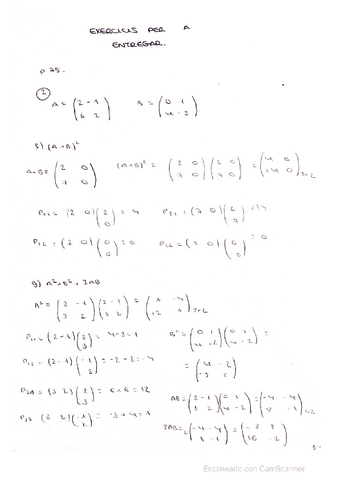 EXERCICIS PER A
ENTREGAR.
P 75.
2
A = (2 -1
3 2) B = (0 1
4 -2)
8) (A+B)²
A+B = (2 0
7 0) (A+B)² = (2 0
7 0)(2 0
7 0) = (4 0
14 0)2×2
P11 = (2 0)(2
7) = 4 P21 = (7 0)(2
7) = 14
P12 = (2 0)(0
0) = 0 P22 = (7 0)(0
0) = 0
9) A² + B² + 2AB
A² = (2 -1
3 2)(2 -1
3 2) = (1 -4
12 1)2×2
P11 = (2 -1)(2
3) = 4-3 = 1 B² = (0 1
4 -2)(0 1
4 -2) =
P12 = (2 -1)(-1
2) = -2-2 = -4 = (4 -2
P21 = (3 2)(2
3) = 6+6 = 12 AB = (2 -1
3 2)(0 1
4 -2) = (-4 4
8 -1)2×2
P22 (3 2)(-1
2) = -3+4 = 1 2AB = 2(-4 4
8 -1) = (-8 8
16 -2)
Escaneado con CamScanner